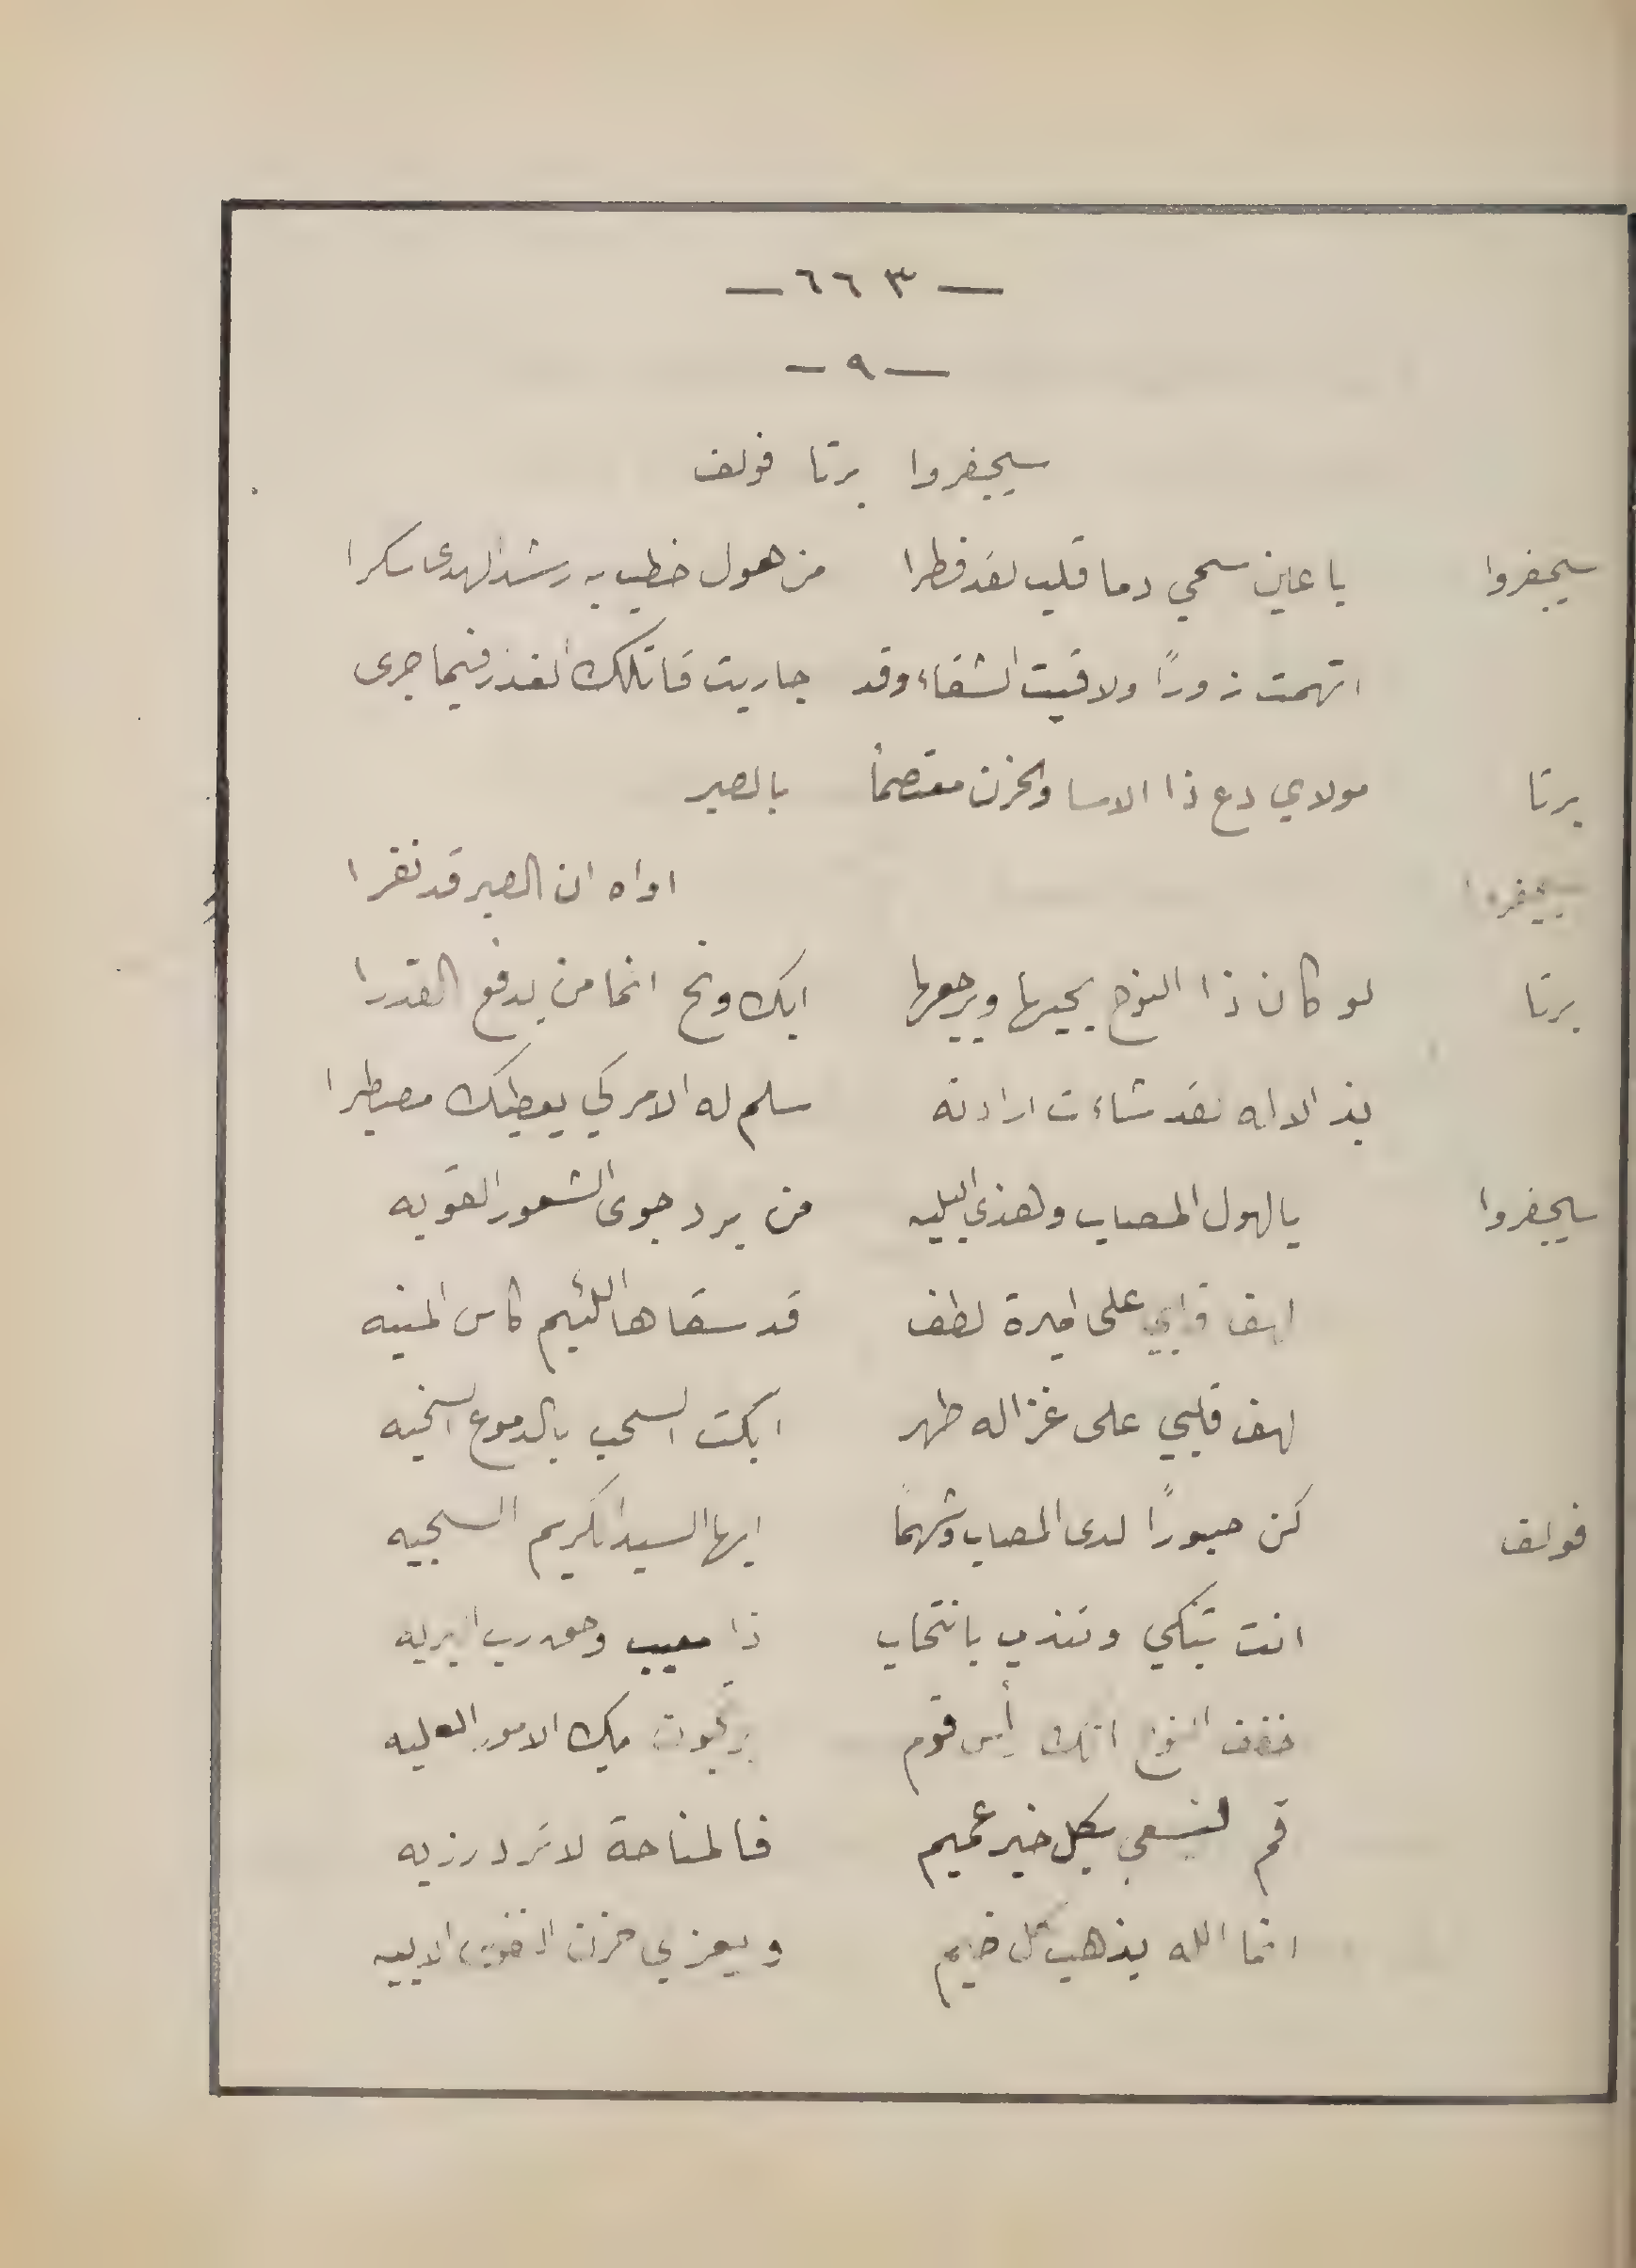 — ٦٦٣ —
— ٩ —
سيجفروا برتا فولف
سيجفروا يا عين سحي دما قلب لقد فطرا من هول خطب به رشد الهدى سكرا
اتهمت زورًا ولاقيت الشقاء وقد جاريت قاتلك الغدر فيما جرى
برتا مولاي دع ذا الاسا والحزن معتصماً بالصبر
سيجفروا اواه ان الصبر قد نفرا
برتا لو كان ذا النوح يحيها ويرجعها ابك ونح انما من يدفع القدرا
الاله لقد شاءت ارادته سلم له الامر كي يعطيك مصطبرا
سيجفروا يالهول المصاب ولهذي البليه من يرد جوى الشعور القويه
لهف قلبي على اميرة لطف قد سقاها اللئيم كاس المنيه
لهف قلبي على غزاله طهر ابكت السحب بالدموع السخيه
فولف كن صبورًا لدى المصاب وشهماً ايها السيد الكريم السجيه
انت تبكي وتندب بانتحاب ذا معيب وحق رب البريه
خفف النوح انك رأس قوم يرتجون بك الامور العليه
قم لنسعى بكل خير عميم فالمناحة لا ترد رزيه
انما الله يذهب كل ضيم ويعزي حزن النفوس الابيه